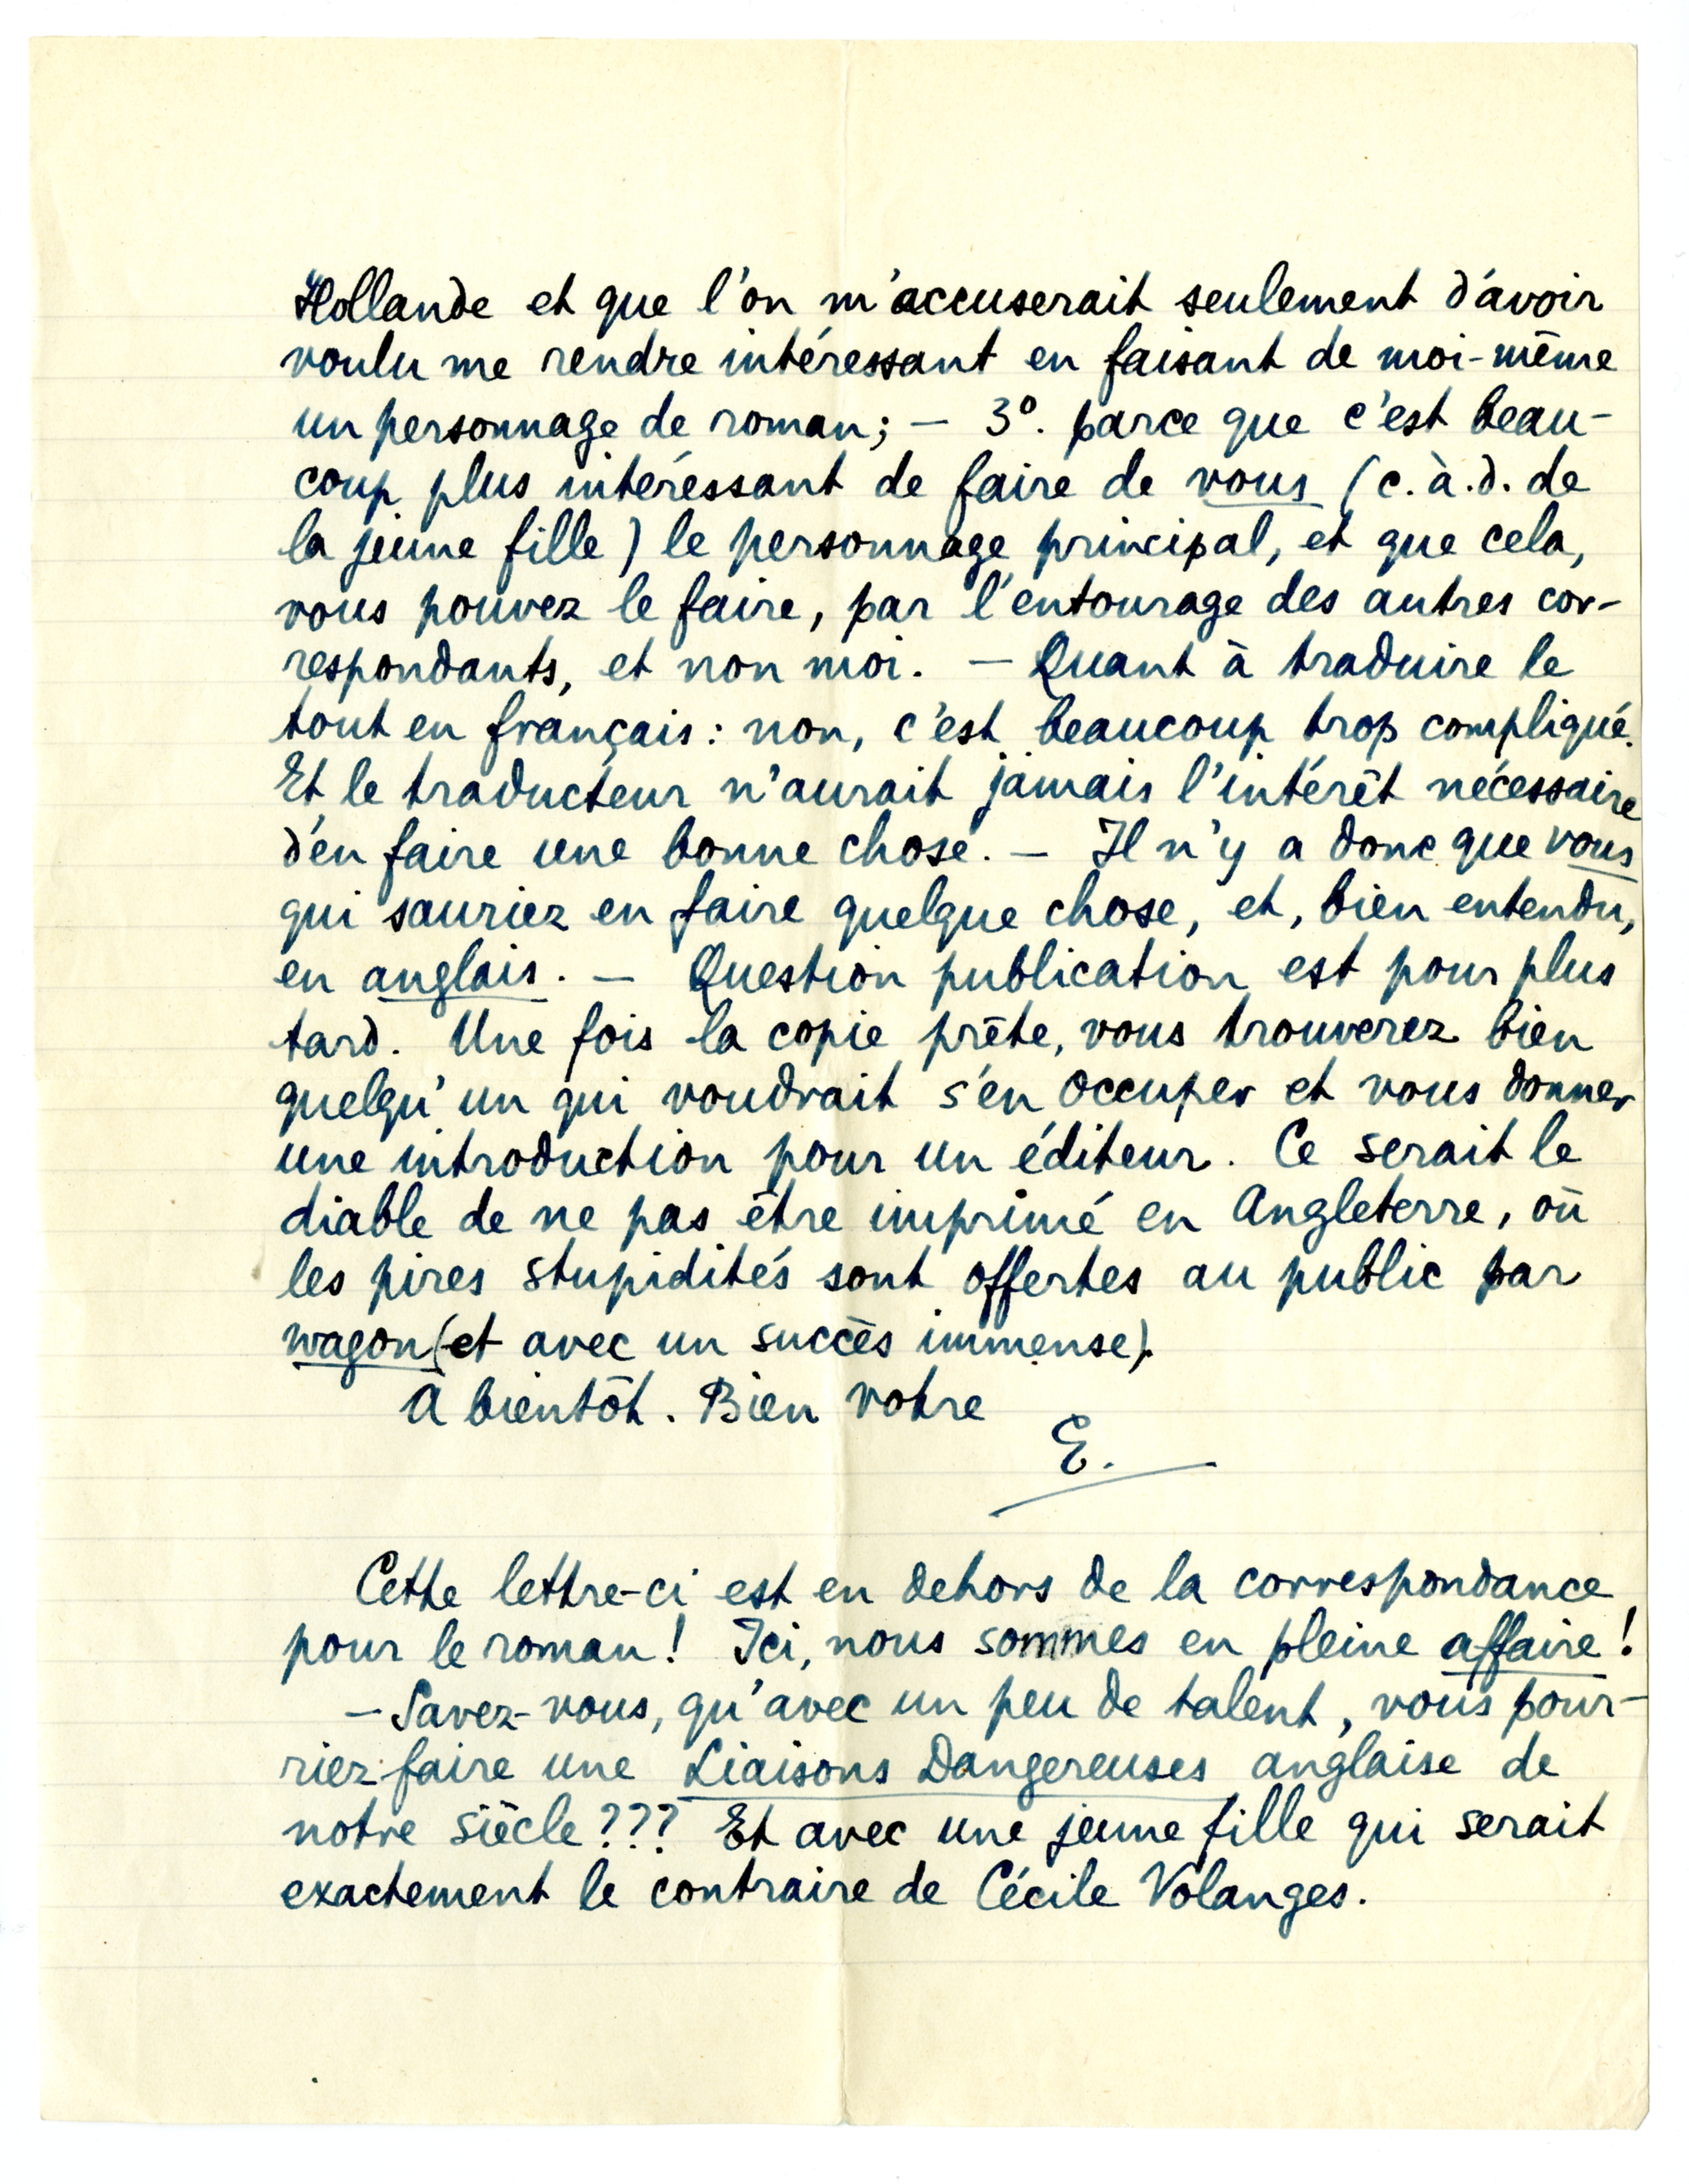 Hollande et que l'on m'accuserait seulement d'avoir
voulu me rendre intéressant en faisant de moi-même
un personnage de roman; — 3º. parce que c'est beau-
coup plus intéressant de faire de vous (c.à.d. de
la jeune fille) le personnage principal, et que cela,
vous pouvez le faire, par l'entourage des autres cor-
respondants, et non moi. — Quant à traduire le
tout en français: non, c'est beaucoup trop compliqué.
Et le traducteur n'aurait jamais l'intérêt nécessaire
d'en faire une bonne chose. — Il n'y a donc que vous
qui sauriez en faire quelque chose, et, bien entendu,
en anglais. — Question publication est pour plus
tard. Une fois la copie prête, vous trouverez bien
quelqu'un qui voudrait s'en occuper et vous donner
une introduction pour un éditeur. Ce serait le
diable de ne pas être imprimé en Angleterre, où
les pires stupidités sont offertes au public par
wagon (et avec un succès immense).
A bientôt. Bien votre
E.
Cette lettre-ci est en dehors de la correspondance
pour le roman! Ici, nous sommes en pleine affaire!
— Savez-vous, qu'avec un peu de talent, vous pour-
riez faire une Liaisons Dangereuses anglaise de
notre siècle??? Et avec une jeune fille qui serait
exactement le contraire de Cécile Volanges.